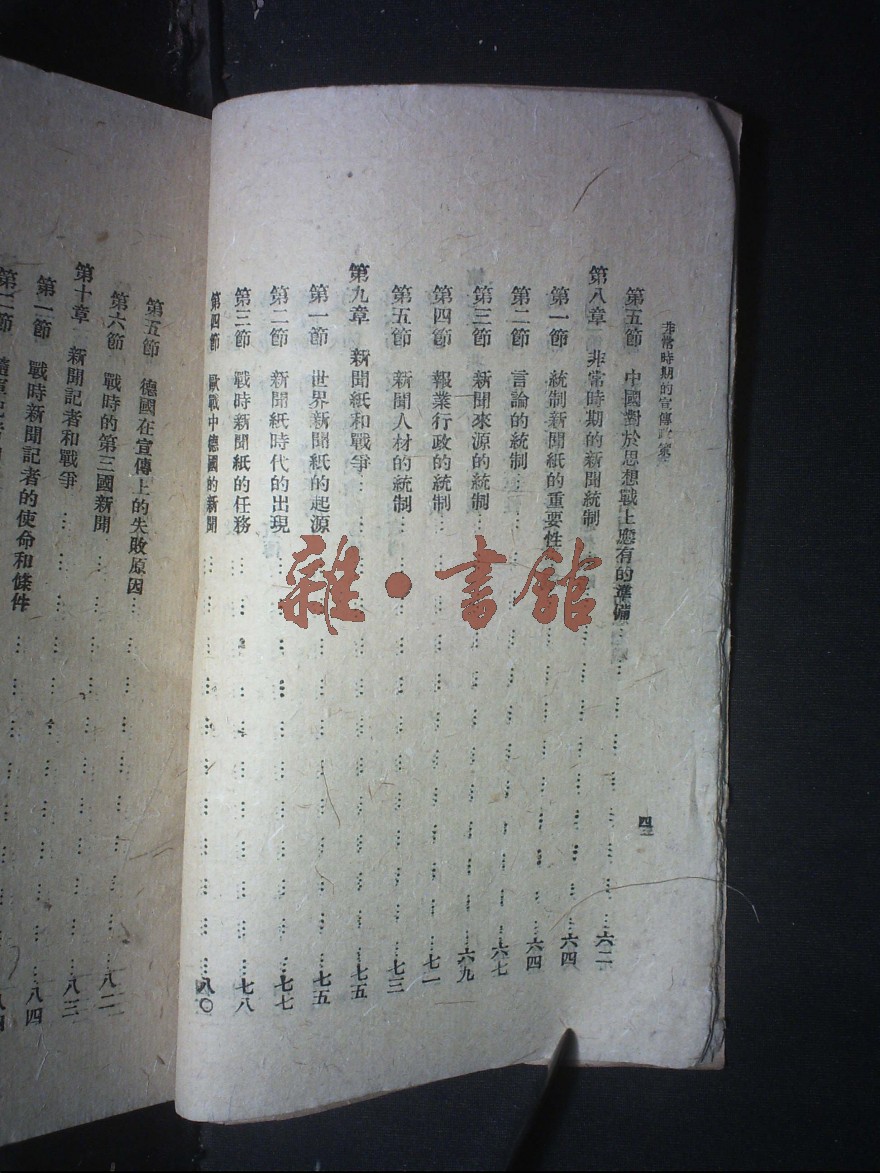 非常時期的宣傳政策
四
第五節 中國對於思想戰上應有的準備……六二
第八章 非常時期的新聞統制……六四
第一節 統制新聞紙的重要性……六四
第二節 言論的統制……六七
第三節 新聞來源的統制……六九
第四節 報業行政的統制……七一
第五節 新聞人材的統制……七三
第九章 新聞紙和戰爭……七五
第一節 世界新聞紙的起源……七五
第二節 新聞紙時代的出現……七七
第三節 戰時新聞紙的任務……七八
第四節 歐戰中德國的新聞……八〇
第五節 德國在宣傳上的失敗原因……八二
第六節 戰時的第三國新聞……八三
第十章 新聞記者和戰爭……八四
第一節 戰時新聞記者的使命和條件
第二節
雜·書館